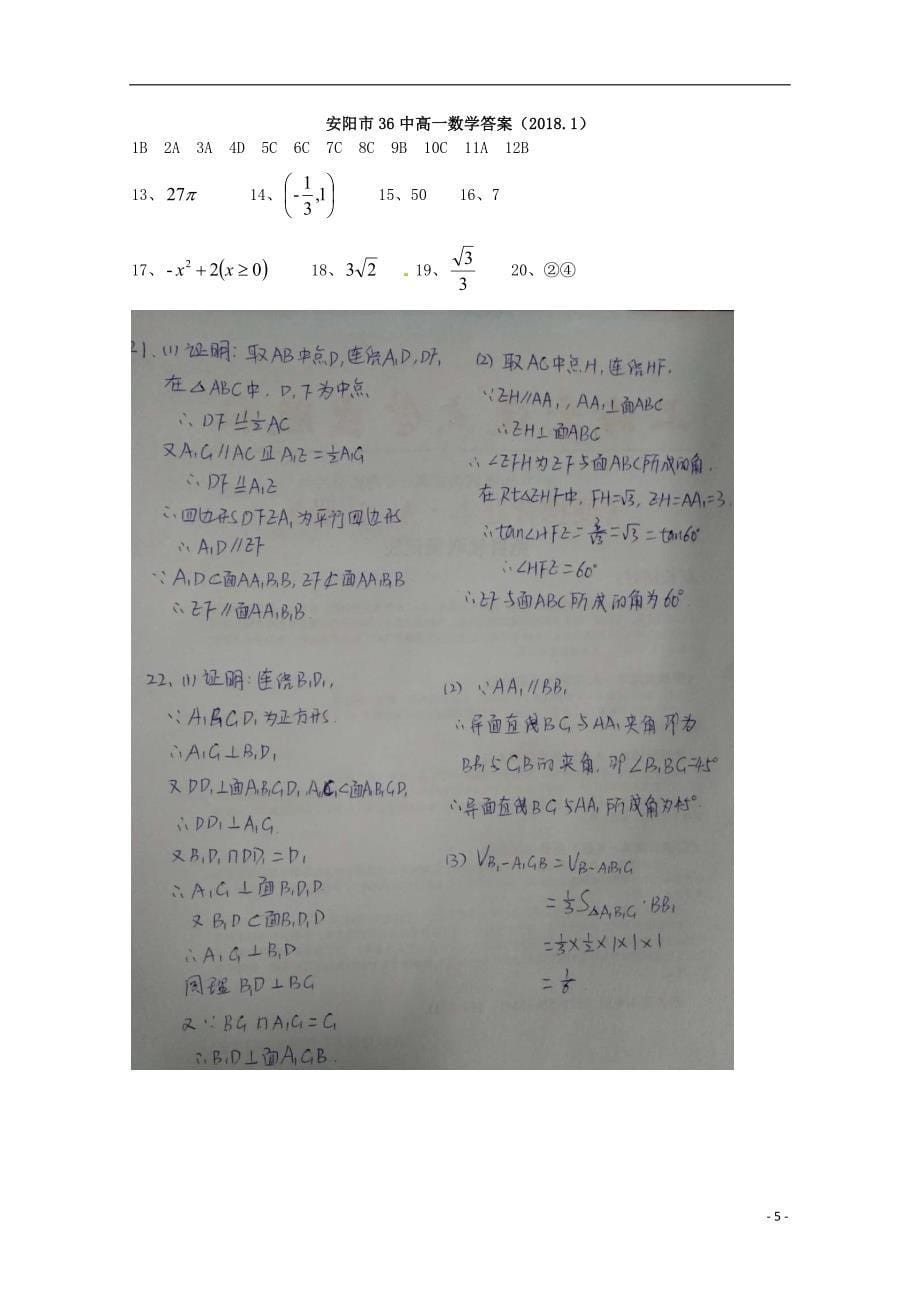 安阳市 36 中高一数学答案（2018.1）
1B 2A 3A 4D 5C 6C 7C 8C 9B 10C 11A 12B
13、27π 14、(-1/3,1) 15、50 16、7
17、-x²+2(x≥0) 18、3√2 19、√3/3 20、②④
21. (1) 证明: 取AB中点D, 连结A₁D, DF,
在△ABC中, D, F为中点
∴ DF ∥= ½AC
又A₁C₁∥AC 且 A₁E=½A₁C₁
∴ DF ∥= A₁E
∴四边形DFEA₁为平行四边形
∴ A₁D∥EF
∵ A₁D⊂面AA₁B₁B, EF⊄面AA₁B₁B
∴ EF∥面AA₁B₁B.
(2) 取AC中点H, 连结HF,
∵EH∥AA₁, AA₁⊥面ABC
∴EH⊥面ABC
∴∠EFH为EF与面ABC所成的角.
在Rt△EHF中, FH=√3, EH=AA₁=3.
∴tan∠HFE=3/√3=√3=tan60°
∴∠HFE=60°
∴EF与面ABC所成的角为60°.
22. (1) 证明: 连结B₁D₁,
∵ A₁B₁C₁D₁为正方形.
∴A₁C₁⊥B₁D₁
又DD₁⊥面A₁B₁C₁D₁, A₁C₁⊂面A₁B₁C₁D₁
∴DD₁⊥A₁C₁.
又B₁D₁∩DD₁=D₁
∴A₁C₁⊥面B₁D₁D
又B₁D⊂面B₁D₁D
∴A₁C₁⊥B₁D
同理 B₁D⊥BC₁
又∵BC₁∩A₁C₁=C₁
∴B₁D⊥面A₁C₁B.
(2) ∵AA₁∥BB₁
∴异面直线BC₁与AA₁夹角即为
BB₁与C₁B的夹角. 即∠B₁BC₁=45°
∴异面直线BC₁与AA₁所成角为45°.
(3) V_{B₁-A₁C₁B}=V_{B-A₁B₁C₁}
=⅓S_{△A₁B₁C₁}·BB₁
=⅓×½×1×1×1
=1/6
- 5 -